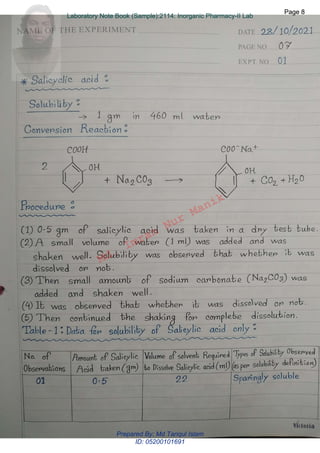 Laboratory Note Book (Sample);2114; Inorganic Pharmacy-II Lab
Page 8
NAME OF THE EXPERIMENT
DATE 23/10/2021
PAGE NO 07
EXPT. NO 01
* Salicyclic acid :
Solubility :
→ 1 gm in 460 ml water
Conversion Reaction :
COOH
COO⁻ Na⁺
2
OH
OH
+ Na2CO3 → + CO2 + H2O
Procedure :
(1) 0.5 gm of salicylic acid was taken in a dry test tube.
(2) A small volume of water (1 ml) was added and was
shaken well. Solubility was observed that whether it was
dissolved or not.
(3) Then small amount of sodium carbonate (Na2CO3) was
added and shaken well.
(4) It was observed that whether it was dissolved or not.
(5) Then continued the shaking for complete dissolution.
Table-1 : Data for solubility of Salicylic acid only :
No. of Observations
Amount of Salicylic Acid taken (gm)
Volume of solvents Required to Dissolve Salicylic acid (ml)
Types of Solubility Observed (as per solubility definition)
01
0.5
22
Sparingly soluble
Nur Manik
Victoria
Prepared By: Md Tariqul Islam
ID: 05200101691